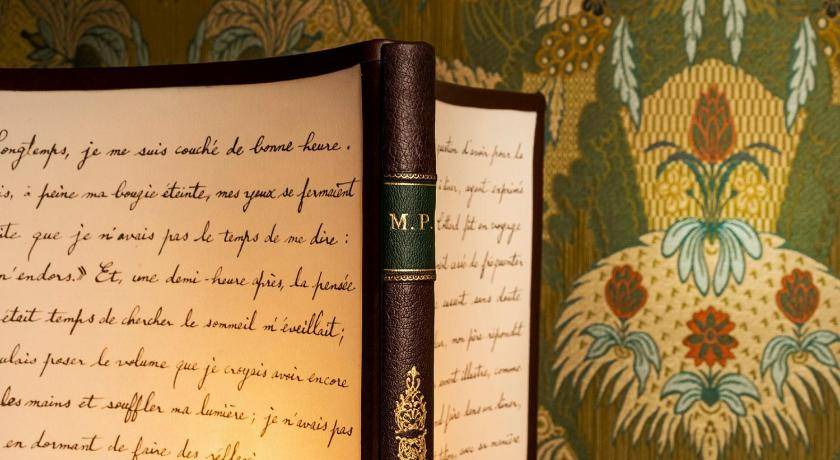 ongtemps, je me suis couché de bonne heure.
is, à peine ma bougie éteinte, mes yeux se fermaient
ite que je n'avais pas le temps de me dire :
m'endors.» Et, une demi-heure après, la pensée
était temps de chercher le sommeil m'éveillait;
ulais poser le volume que je croyais avoir encore
les mains et souffler ma lumière; je n'avais pas
en dormant de faire des réfle
M.P.
question d'avoir pour la
exprimé
fût en voyage
de fréquenter
eussent sans doute
mon père répondit
illustre, comme
dîner,
avec sa manière